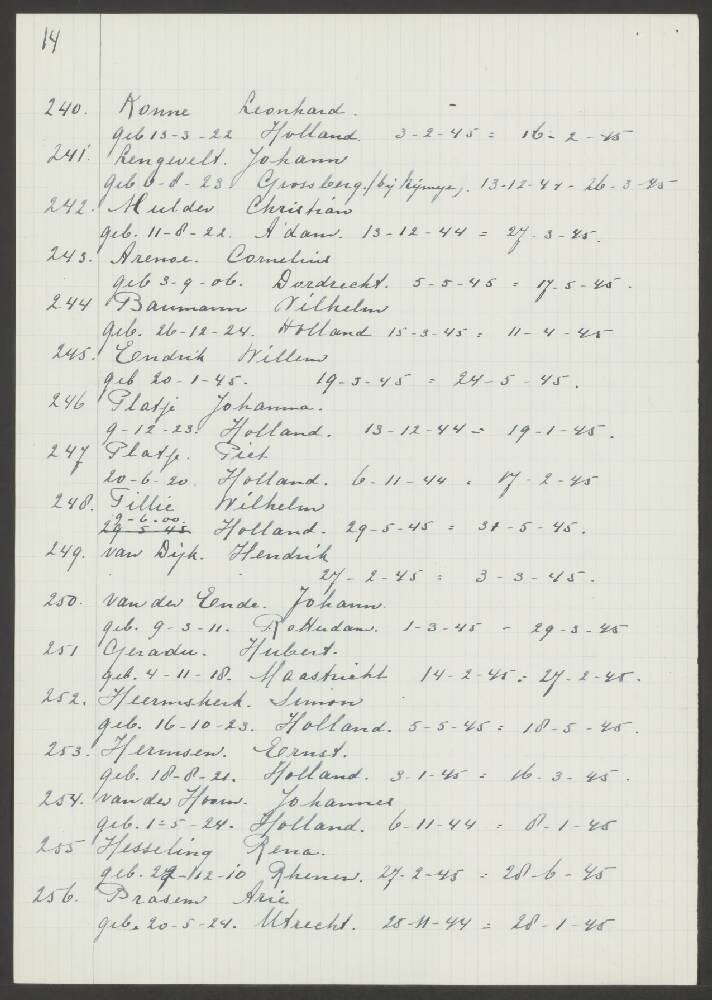 14
240. Konne Leonhard. -
geb 13-3-22 Holland 3-2-45 = 16-2-45
241. Lengevelt. Johann
geb 6-8-23 Grossberg (bij Nijmegen). 13-12-44 - 26-3-45
242. Mulder Christian
geb. 11-8-22. A'dam. 13-12-44 = 27-3-45.
243. Arenoe. Cornelius
geb 3-9-06. Dordrecht. 5-5-45 = 17-5-45.
244 Baumann Wilhelm
geb. 26-12-24. Holland 15-3-45 = 11-4-45
245. Eendrik Willem
geb 20-1-45. 19-5-45 = 24-5-45.
246 Platje Johanna.
9-12-23. Holland. 13-12-44 = 19-1-45.
247 Platje. Piet
20-6-20. Holland. 6-11-44 = 17-2-45
248. Tillie Wilhelm
9-6-00.
29-5-45 Holland. 29-5-45 = 31-5-45.
249. van Dijk. Hendrik
27-2-45 = 3-3-45.
250. van der Ende. Johann.
geb. 9-3-11. Rotterdam. 1-3-45 - 29-3-45
251 Geradu. Hubert.
geb. 4-11-18. Maastricht 14-2-45 = 27-2-45.
252. Heermskerk. Simon
geb. 16-10-23. Holland. 5-5-45 = 18-5-45.
253. Hermsen. Ernst.
geb. 18-8-21. Holland. 3-1-45 = 16-3-45.
254. van der Hoorn. Johannes
geb. 1-5-24. Holland. 6-11-44 = 8-1-45
255 Hesseling Rena.
geb. 27-12-10 Rhenen. 27-2-45 = 28-6-45
256. Prasem Arie
geb. 20-5-24. Utrecht. 25-11-44 = 28-1-45